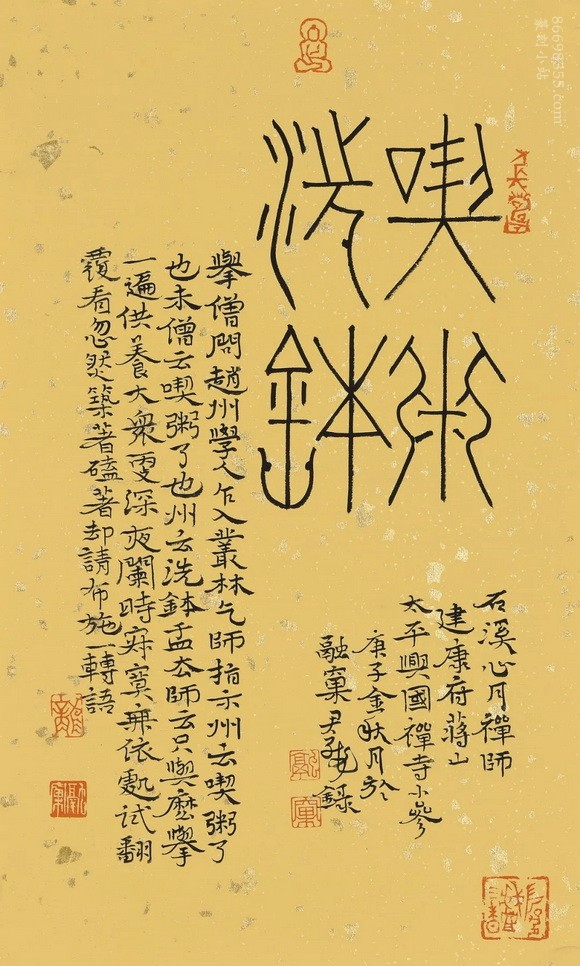 喫粥
洗鉢
石溪心月禪師
建康府蔣山
太平興國禪寺小參
庚子金秋月於
融窠尹錄
舉僧問趙州學人乍入叢林乞師指示州云喫粥了
也未僧云喫粥了也州云洗鉢盂去師云只與麼舉
一遍供養大衆更深夜闌時寂寞無依處試翻
覆看忽然築著磕著却請布施一轉語
篆刻小站